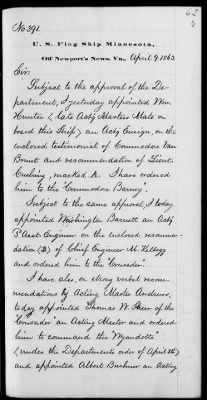 No 391.
U. S. Flag Ship Minnesota,
Off Newport's News, Va., April 9 1863.
Sir:
Subject to the approval of the De-
partment, I yesterday appointed Wm
Hunter (late Actg Masters Mate on
board this Ship) an Actg Ensign, on the
enclosed testimonial of Commodore Van
Brunt and recommendation of Lieut.
Cushing, marked A. I have ordered
him to the "Commodore Barney".
Subject to the same approval, I today
appointed Washington Barnett an Actg
3d Asst. Engineer on the enclosed recommen-
dation (B) of Chief Engineer M. Kellogg
and ordered him to the "Crusader"
I have also, on strong verbal recom-
mendations by Acting Master Andrews,
today appointed Thomas W. Sheer of the
"Crusader" an Acting Master and ordered
him to command the "Wyandotte"
(under the Departments order of April 8th)
and appointed Albert Buhner an Acting